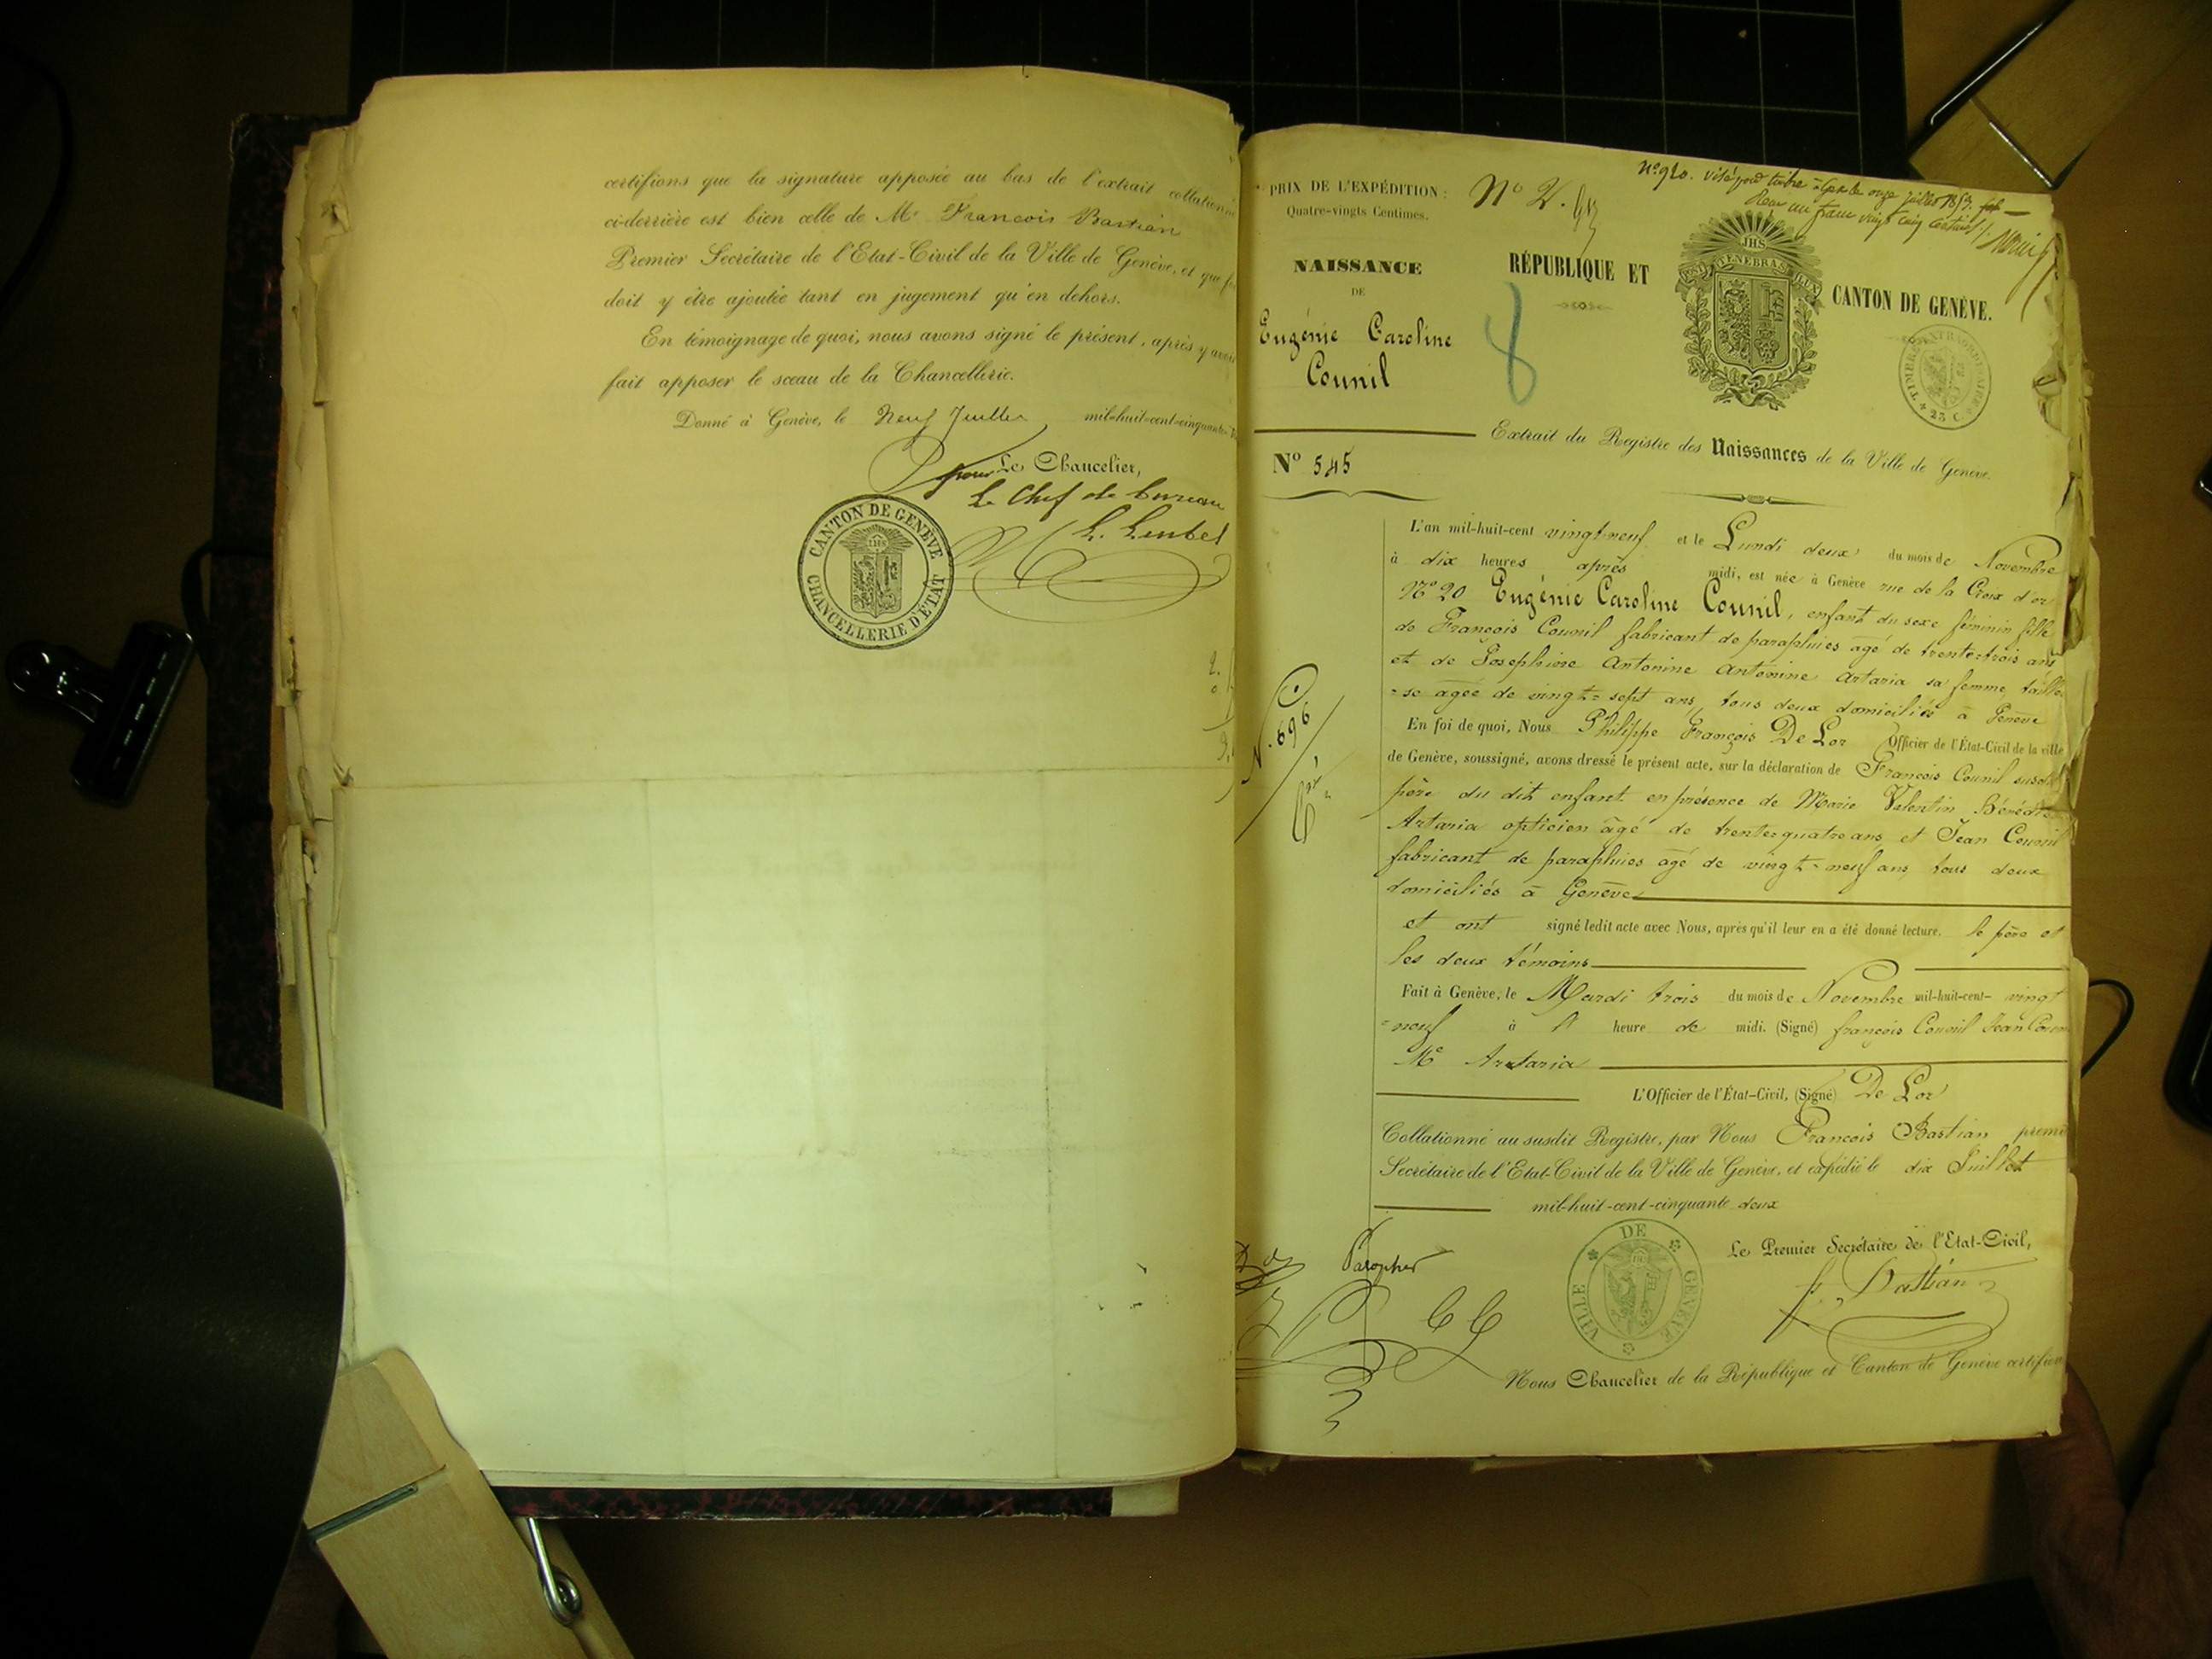 certifions que la signature apposée au bas de l'extrait collationné
ci-derrière est bien celle de Mr François Bastian
Premier Secrétaire de l'Etat-Civil de la Ville de Genève, et que
doit y être ajoutée tant en jugement qu'en dehors.
En témoignage de quoi, nous avons signé le présent, après y avoir
fait apposer le sceau de la Chancellerie.
Donné à Genève, le Neuf Juillet mil-huit-cent-cinquante
pour Le Chancelier,
Le Chef de bureau
CANTON DE GENÈVE
CHANCELLERIE D'ÉTAT
No 920. visé pour timbre à Gex le onze juillet 1853.
un franc vingt cinq centimes
PRIX DE L'EXPÉDITION :
Quatre-vingts Centimes.
No 2.
NAISSANCE
DE
Eugénie Caroline
Counil
No 545
8
RÉPUBLIQUE ET
JHS
POST TENEBRAS LUX
CANTON DE GENÈVE.
TIMBRE EXTRAORDINAIRE
25 C.
Extrait du Registre des Naissances de la Ville de Genève.
L'an mil-huit-cent vingt-neuf et le Lundi deux du mois de Novembre
à dix heures après midi, est née à Genève rue de la Croix d'or
No 20 Eugénie Caroline Counil, enfant du sexe féminin fille
de François Counil fabricant de parapluies agé de trente-trois ans
et de Josephine Antonine Antonine Artaria sa femme, taille
=se agée de vingt=sept ans, tous deux domiciliés à Genève
En foi de quoi, Nous Philippe François De Lor Officier de l'État-Civil de la ville
de Genève, soussigné, avons dressé le présent acte, sur la déclaration de François Counil susdit
père du dit enfant en présence de Marie Valentin Bénédit
Artaria opticien âgé de trente=quatre ans et Jean Counil
fabricant de parapluies agé de vingt-neuf ans tous deux
domiciliés à Genève
et ont signé ledit acte avec Nous, après qu'il leur en a été donné lecture. le père et
les deux témoins
Fait à Genève, le Mardi trois du mois de Novembre mil-huit-cent- vingt
=neuf à heure de midi. (Signé) françois Counil Jean Coun
Me Artaria
L'Officier de l'État-Civil, (Signé) De Lor
N. 696
Collationné au susdit Registre, par Nous François Bastian premi
Secrétaire de l'Etat-Civil de la Ville de Genève, et expédié le dix Juillet
mil-huit-cent-cinquante deux
Le Premier Secrétaire de l'Etat-Civil,
f. Bastian
VILLE DE GENÈVE
Nous Chancelier de la République et Canton de Genève certifions